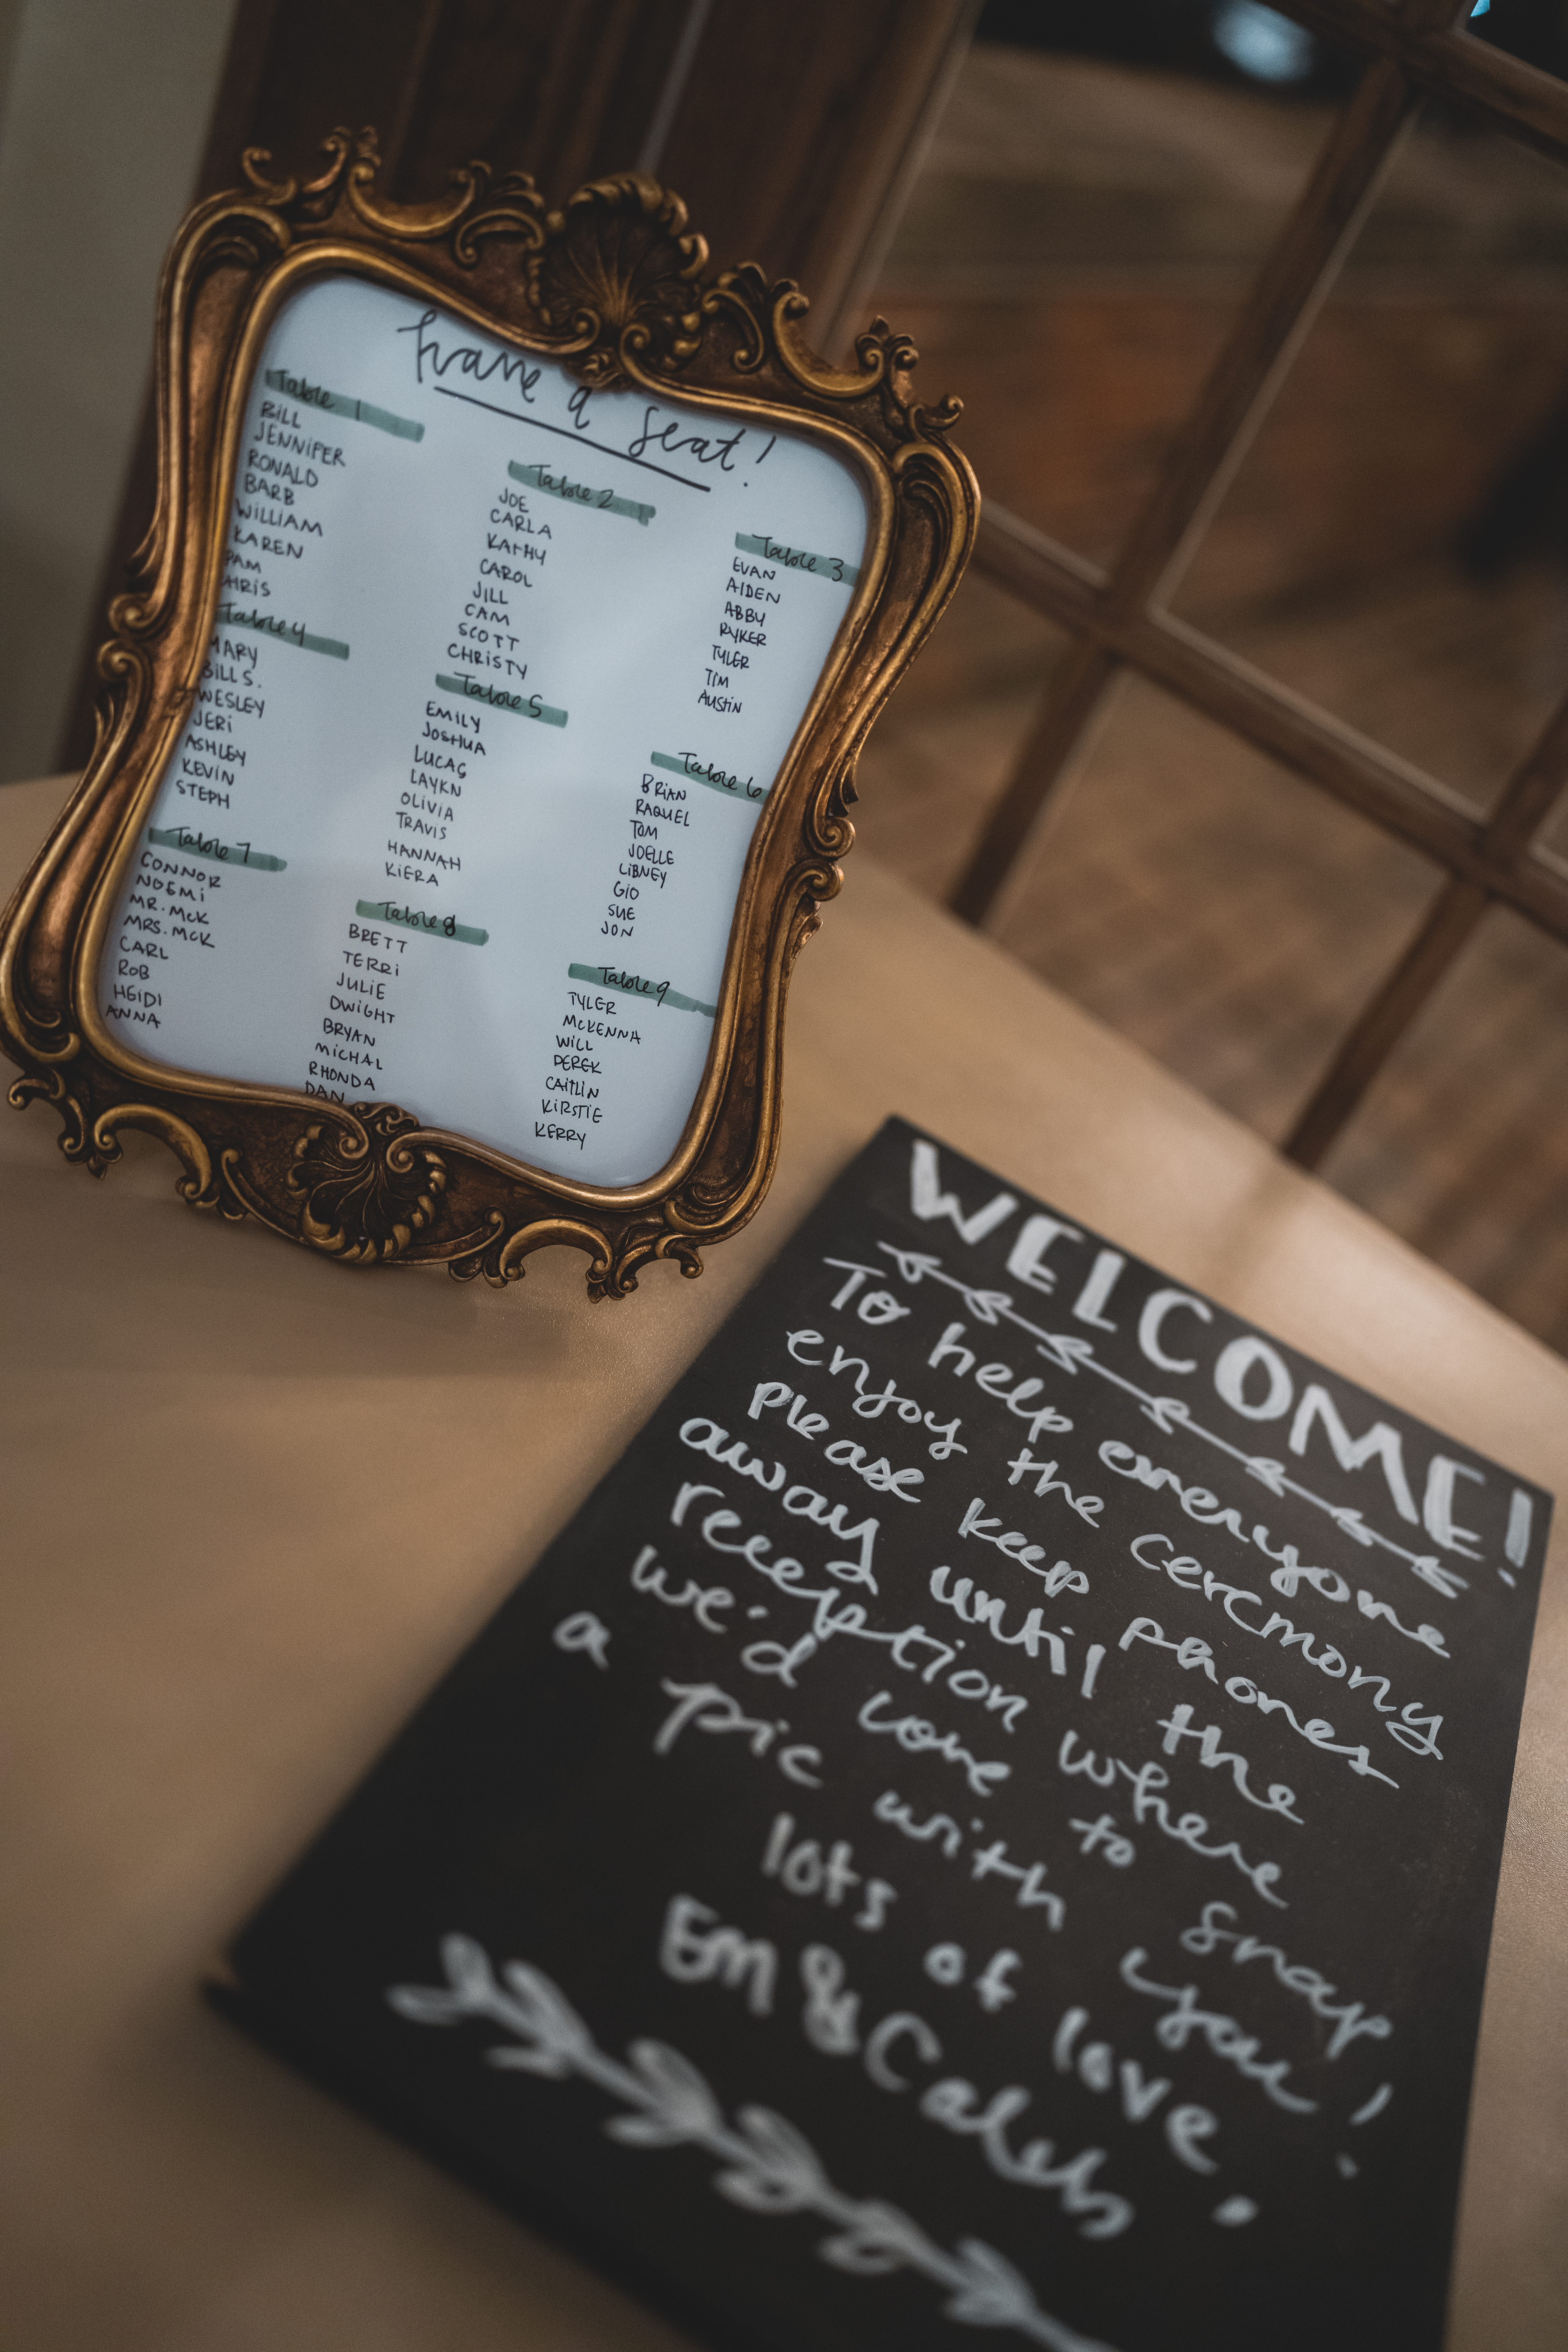 have a seat!
Table 1
BILL
JENNIFER
RONALD
BARB
WILLIAM
KAREN
PAM
CHRIS
Table 2
JOE
CARLA
KATHY
CAROL
JILL
CAM
SCOTT
CHRISTY
Table 3
EVAN
AIDEN
ABBY
RYKER
TYLER
TIM
AUSTIN
Table 4
MARY
BILL S.
WESLEY
JERI
ASHLEY
KEVIN
STEPH
Table 5
EMILY
JOSHUA
LUCAS
LAYKN
OLIVIA
TRAVIS
HANNAH
KIERA
Table 6
BRIAN
RAQUEL
TOM
JOELLE
LIBNEY
GIO
SUE
JON
Table 7
CONNOR
NOEMI
MR. MCK
MRS. MCK
CARL
ROB
HEIDI
ANNA
Table 8
BRETT
TERRI
JULIE
DWIGHT
BRYAN
MICHAL
RHONDA
DAN
Table 9
TYLER
MCKENNA
WILL
DEREK
CAITLIN
KIRSTIE
KERRY
WELCOME!
To help everyone
enjoy the ceremony
please keep phones
away until the
reception where
we'd love to snap
a pic with you!
lots of love,
Em & Caleb